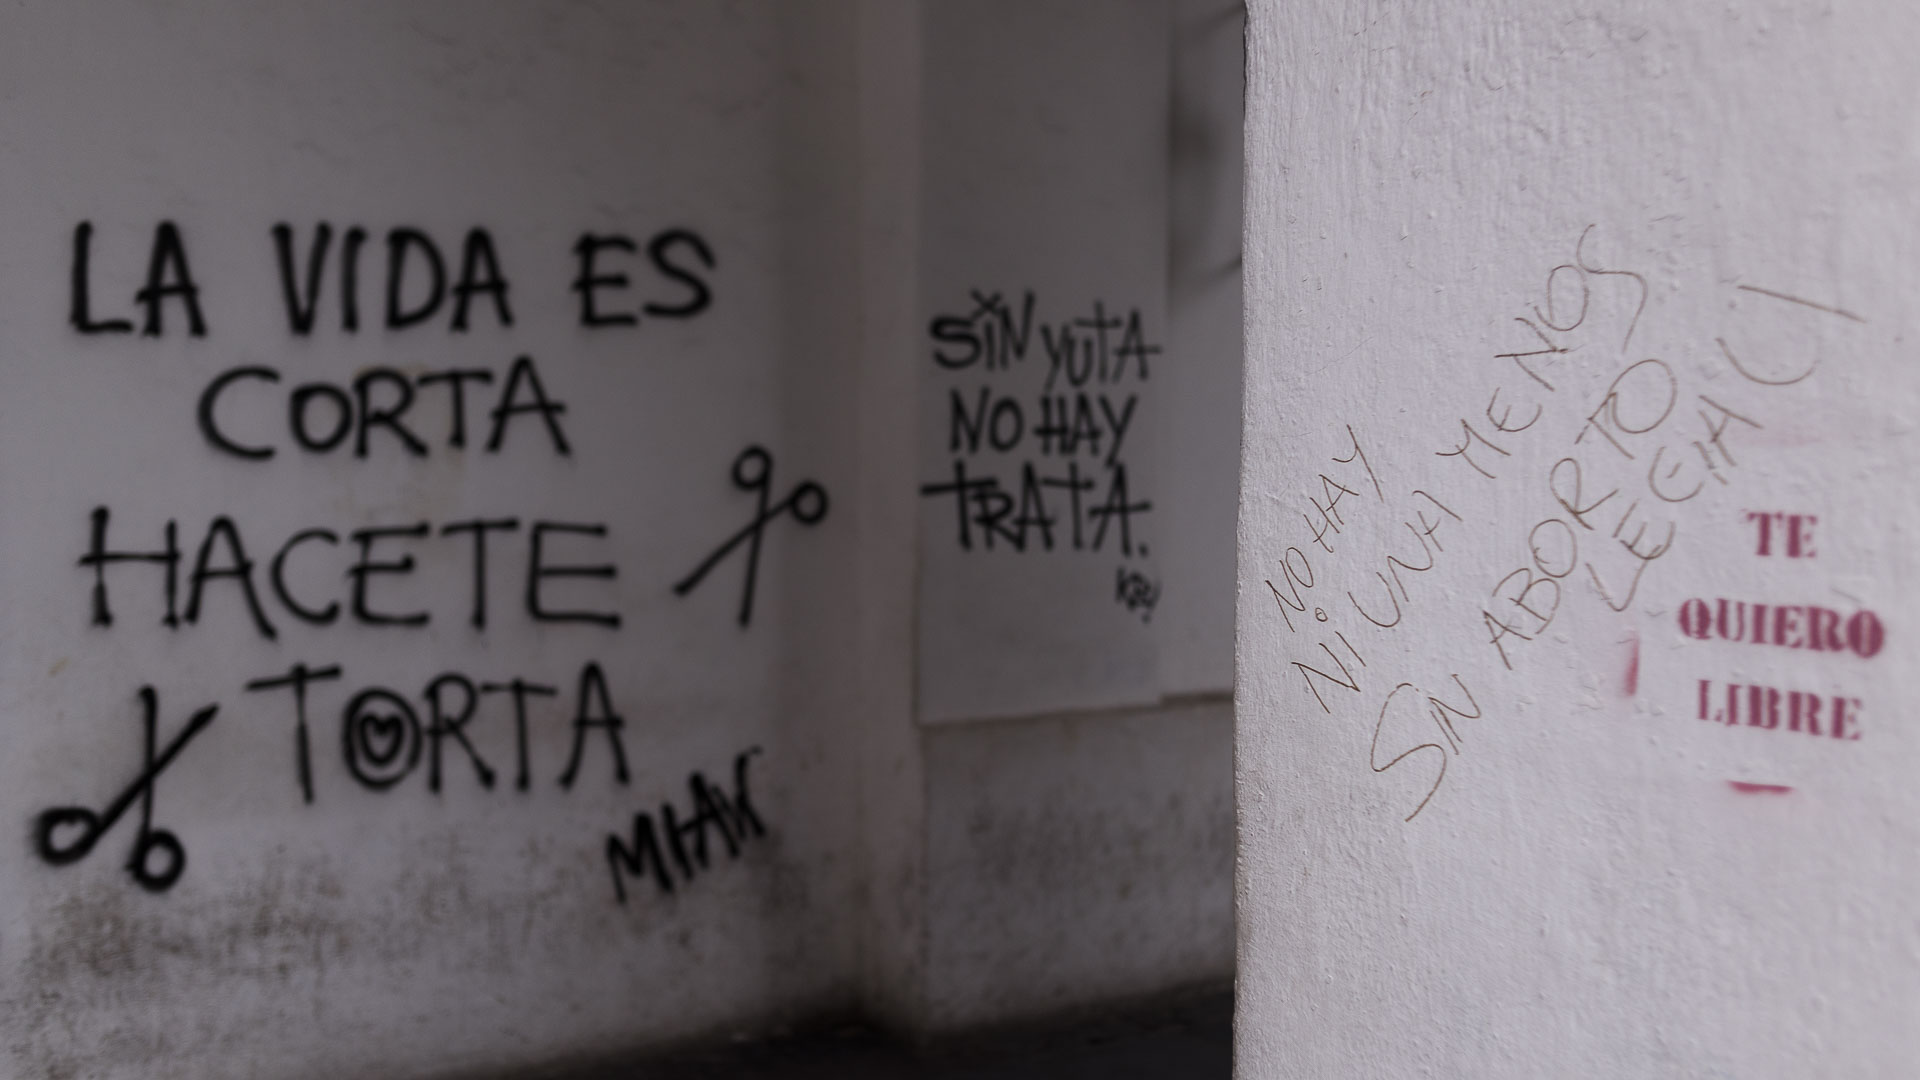 LA VIDA ES
CORTA
HACETE
TORTA
MIAW
SIN YUTA
NO HAY
TRATA.
NO HAY
NI UNA MENOS
SIN ABORTO
TE
QUIERO
LIBRE